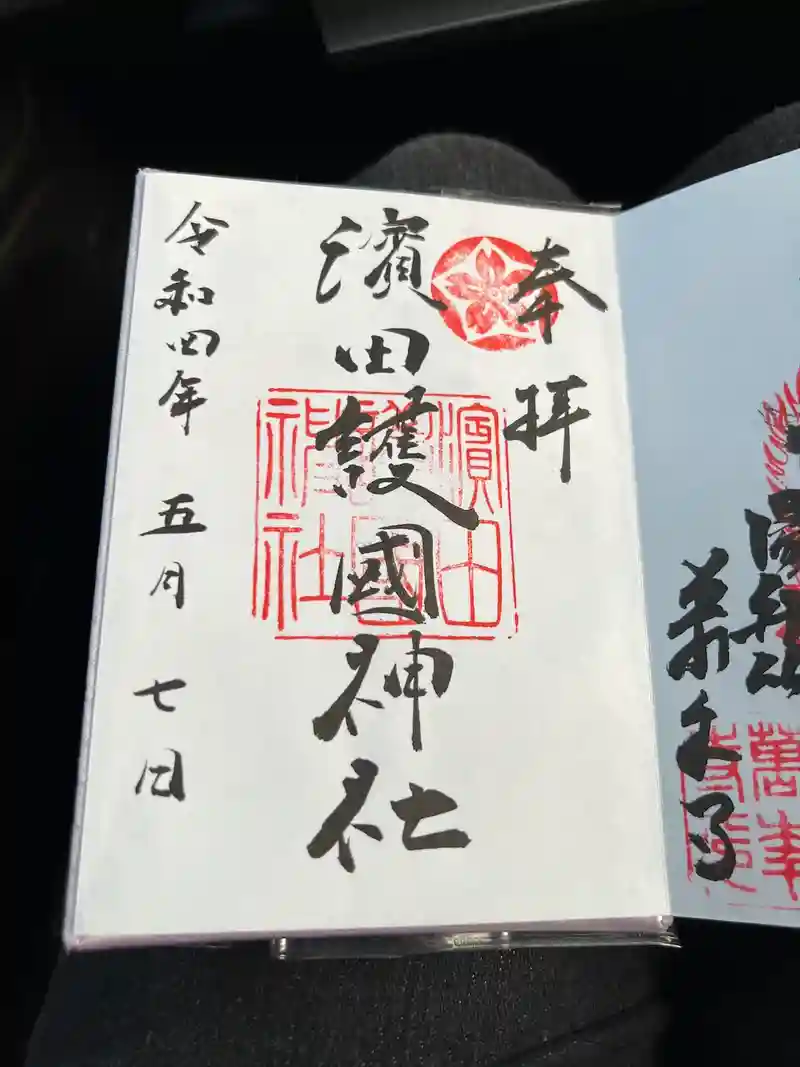 奉拝
濱田護國神社
濱田護國神社
令和四年 五月 七日